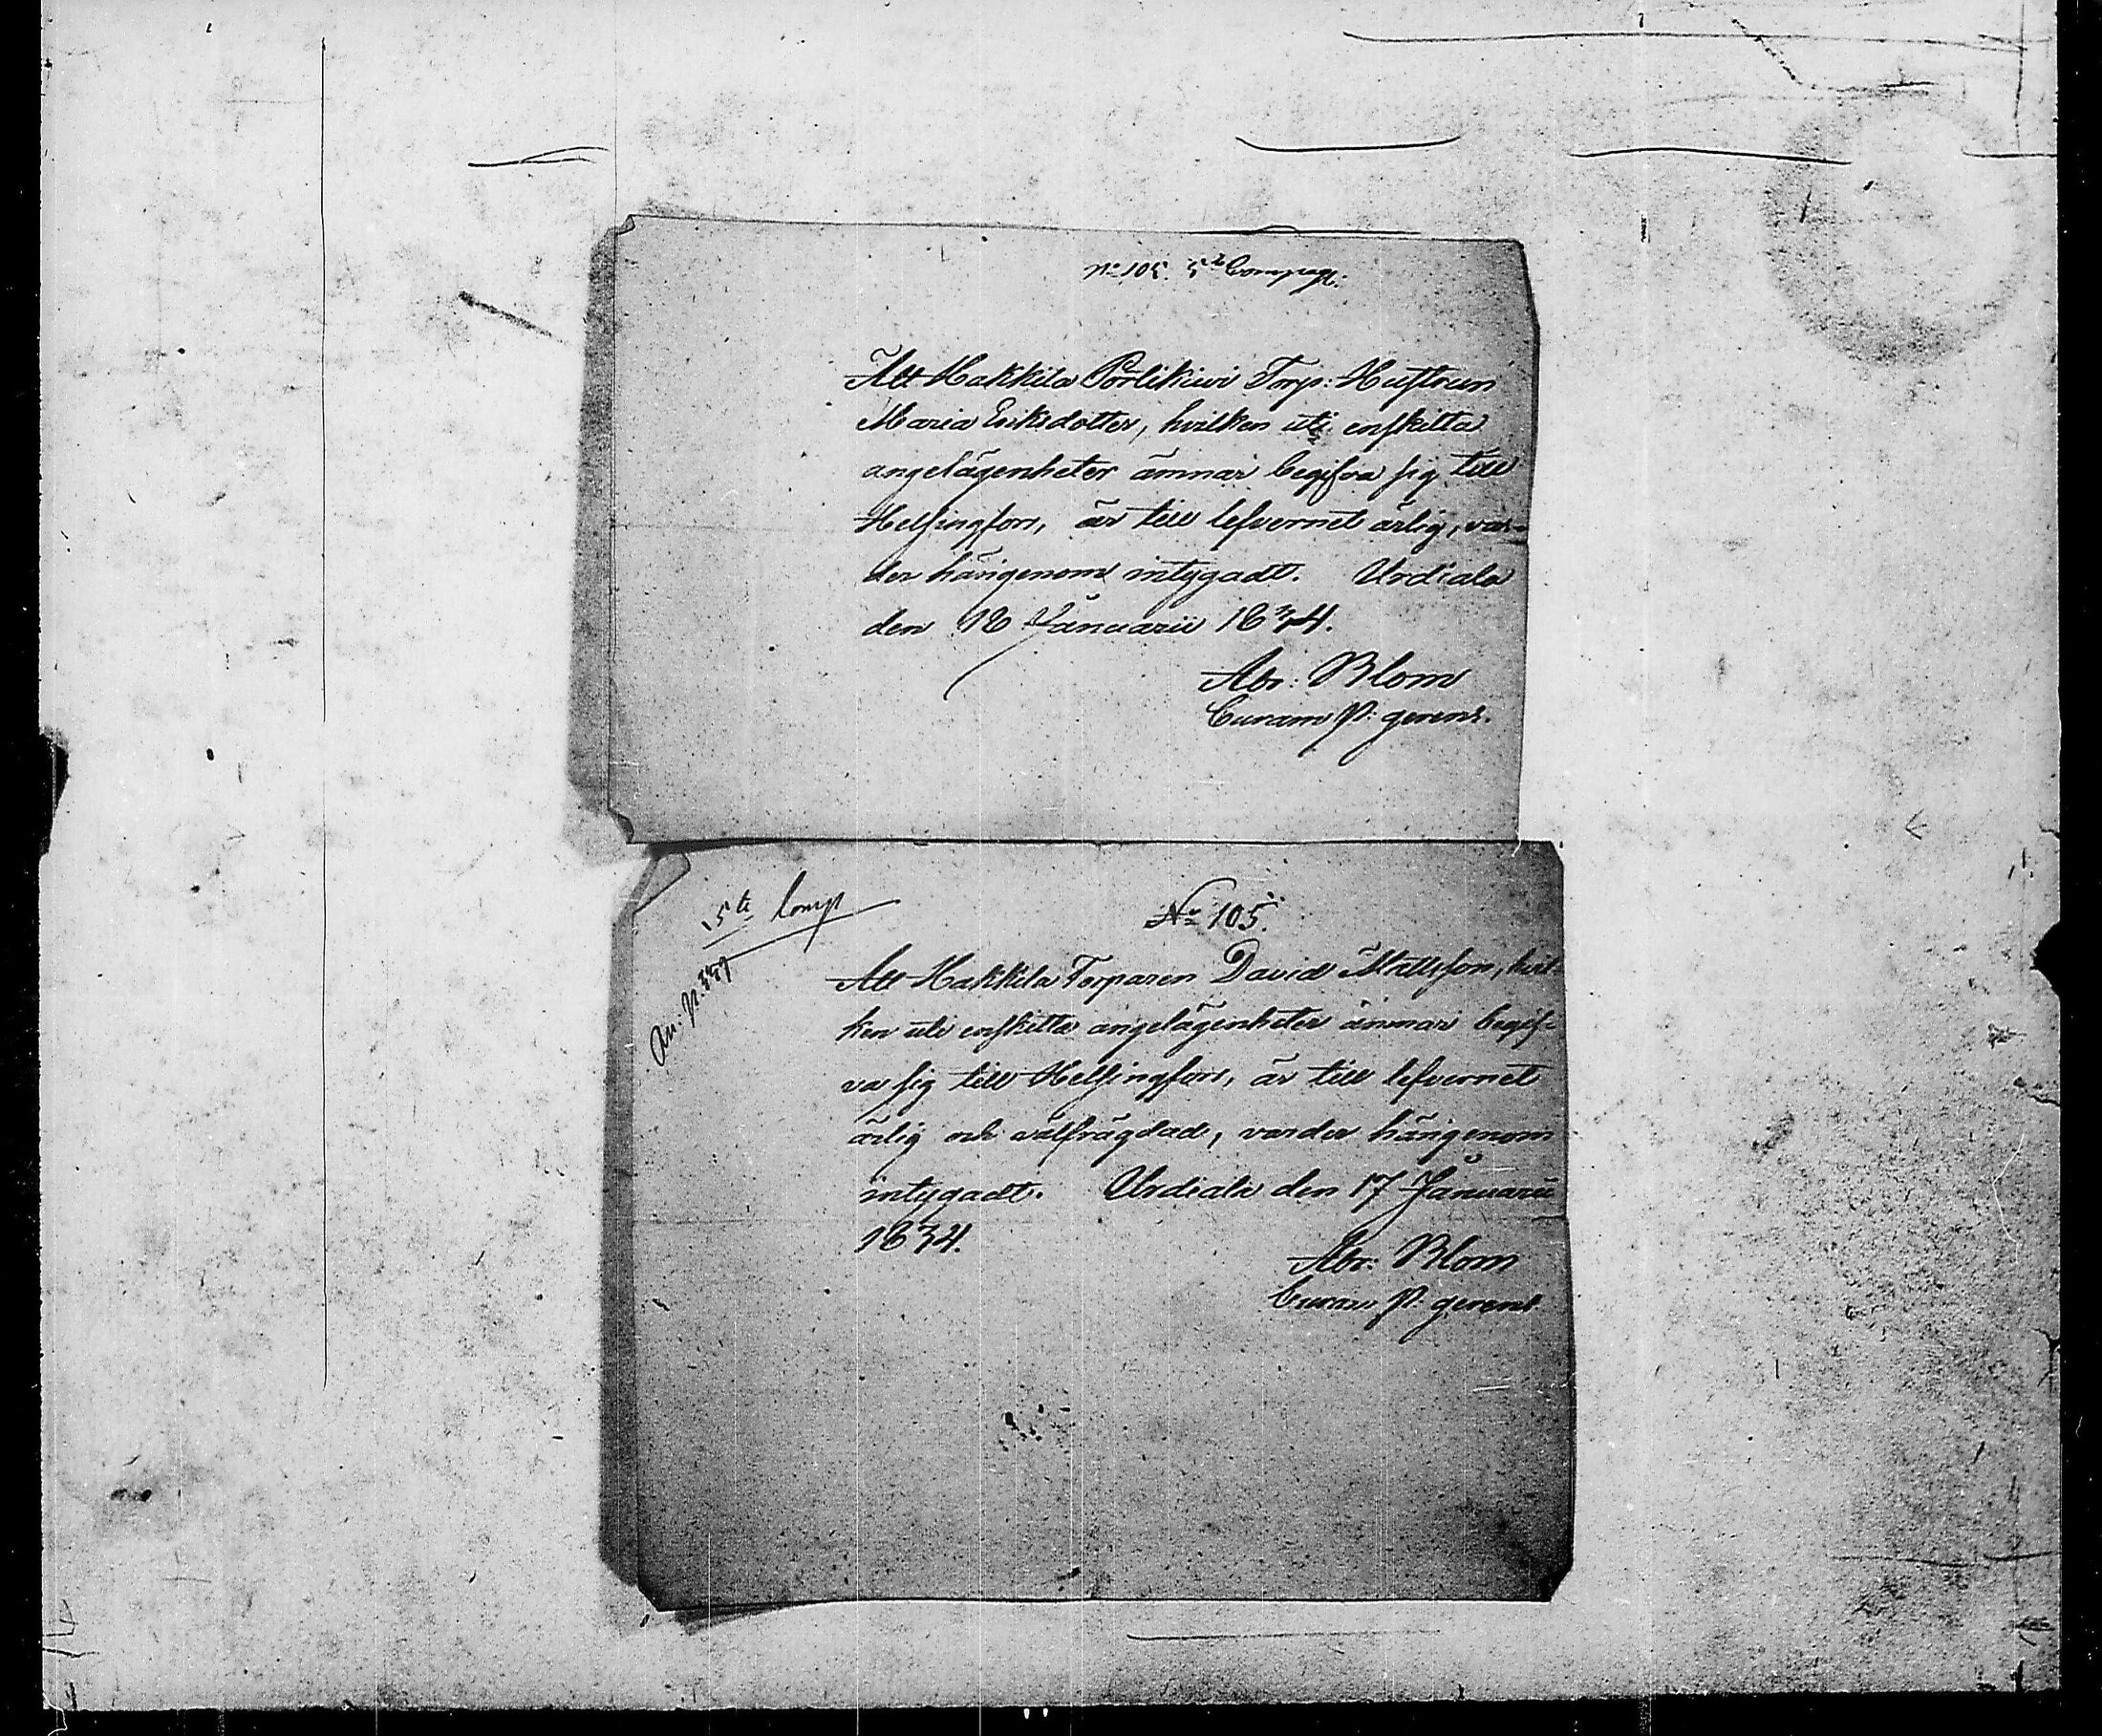 No 105. 5te Compagt.
Att Hakkila Porlikiwi Torp: Hustrun
Maria Eriksdotter, hvilken uti enskilta
angelägenheter ämnar begifva sig till
Helsingfors, är till lefvernet ärlig, var-
der härigenom intygadt. Urdiala
den 18 Januarii 1834.
Abr: Blom
Curam P: gerens.
5te Comp
No 105.
Att Hakkila Torparen David Mattsson, hvil-
ken uti enskilta angelägenheter ämnar begif-
va sig till Helsingfors, är till lefvernet
ärlig och välfrägdad, varder härigenom
intygadt. Urdiala den 17 Januarii
1834.
Abr: Blom
Curam P: gerens